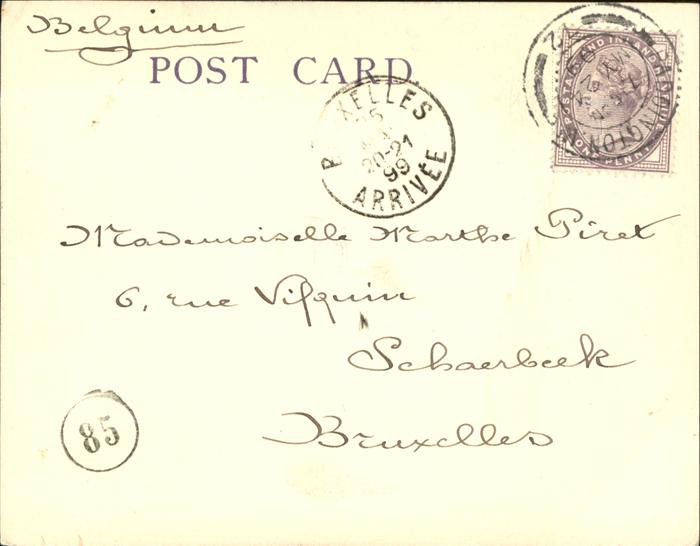 Belgium
POST CARD.
XELLES
20-21
99
ARRIVÉE
POSTAGE AND INLAND REVENUE
ONE PENNY
Mademoiselle Marthe Piret
6, rue Vifquin
Schaerbeek
Bruxelles
85